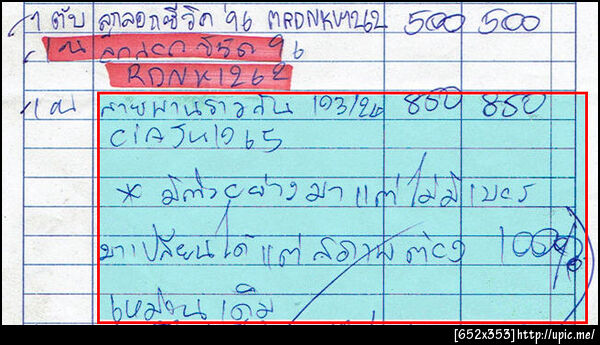 1 ตับ ลูกลอกซีวิค '96 MRDNKV1262 500 500
1 ใน ลูกลอกซีวิค 96
RDNK1262
1 ใน สายพานราวลิ้น 193/24 850 850
* มีตัวอย่างมา แต่ ไม่มีเบอร์
มาเปลี่ยนได้ แต่ สภาพ ต้อง 100%
เหมือนเดิม
[652x353]http://upic.me/